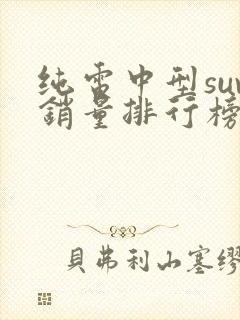 純電中型suv
銷量排行榜
貝弗利山塞繆